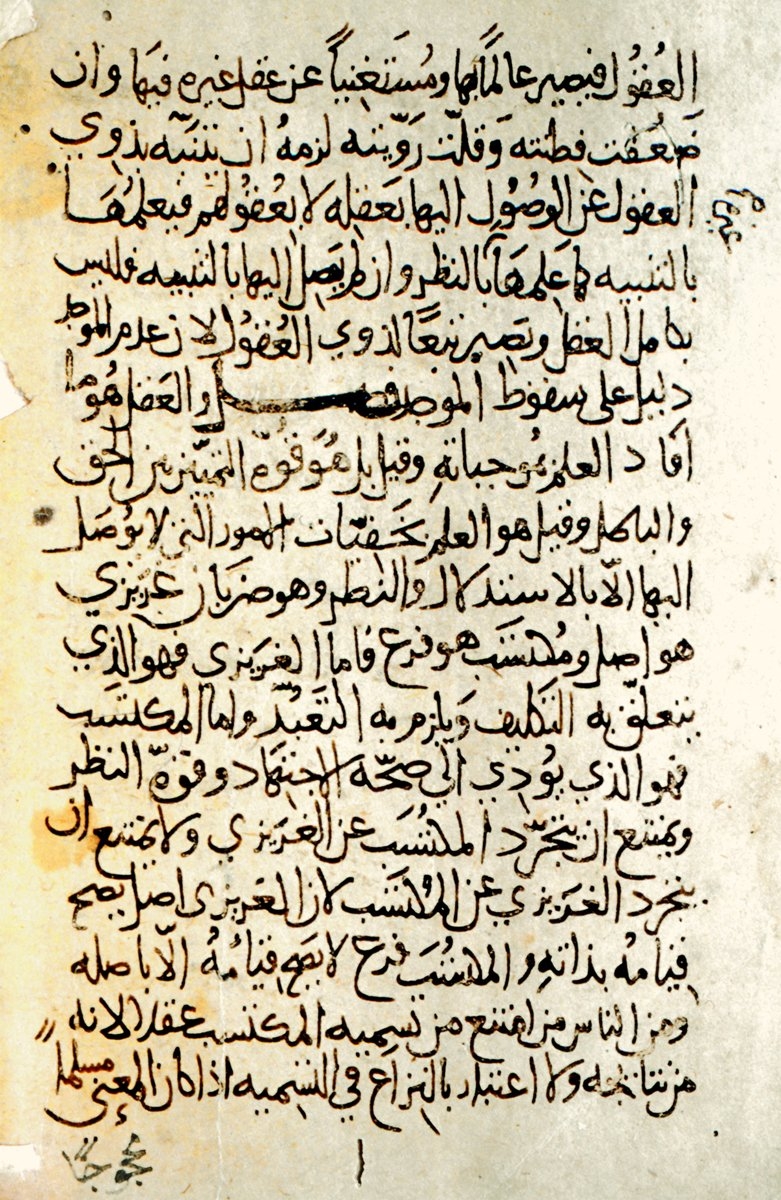 العُقُول فيصير عالمًا بها ومُستَغنياً عن عقل غيره فيها وان
ضَعُفت فطنته وَقلّت رَوّيته لزمهُ ان يتنبّه بذوي
العقول عن الوصُول اليها بعَقله لا بعُقُولهم فيعلمُهَا
بالتنبيه كما عَلمهَا بالنظر وان لم يَصل اليها بالتنبيه فليس
بكامل العقل ويصير تبعًا لذوي العُقوُل لان عدم الموجَب
دليل على سقوط الموجِب فصل والعَقل هُو ما
افاد العلم بمُوجباتهِ وقيل بل هُوَ قوّة التمييّز بين الحق
والباطل وقيل هو العلم بخَفيّات الامور التي لا يوُصَل
اليها الاّ بالاستدلال والنظر وهو ضربَان غريزي
هو اصل ومُكتسَب هو فرع فاما الغريزي فهو الذي
يتعلّق به التكليف وَيلزم به التَعَبّد واما المكتسَب
فهو الذي يُؤدي الي صحّه الاجتهاد وقوّة النظر
ويمتنع ان يتجرّد المكتسَب عن الغريزي ولا يمتنع ان
يتجرد الغريزي عن المكتسَب لان الغريزى اصل يصح
قيامهُ بذاتهِ والمكتسَب فرع لا يصح قيَامُهُ الاّ باصله
ومن الناس من امتنع من تسميه المكتسب عقلا لانه
من نتائجه ولا اعتبار بالنزاع في التسميه اذا كان المعنى مسلما
١